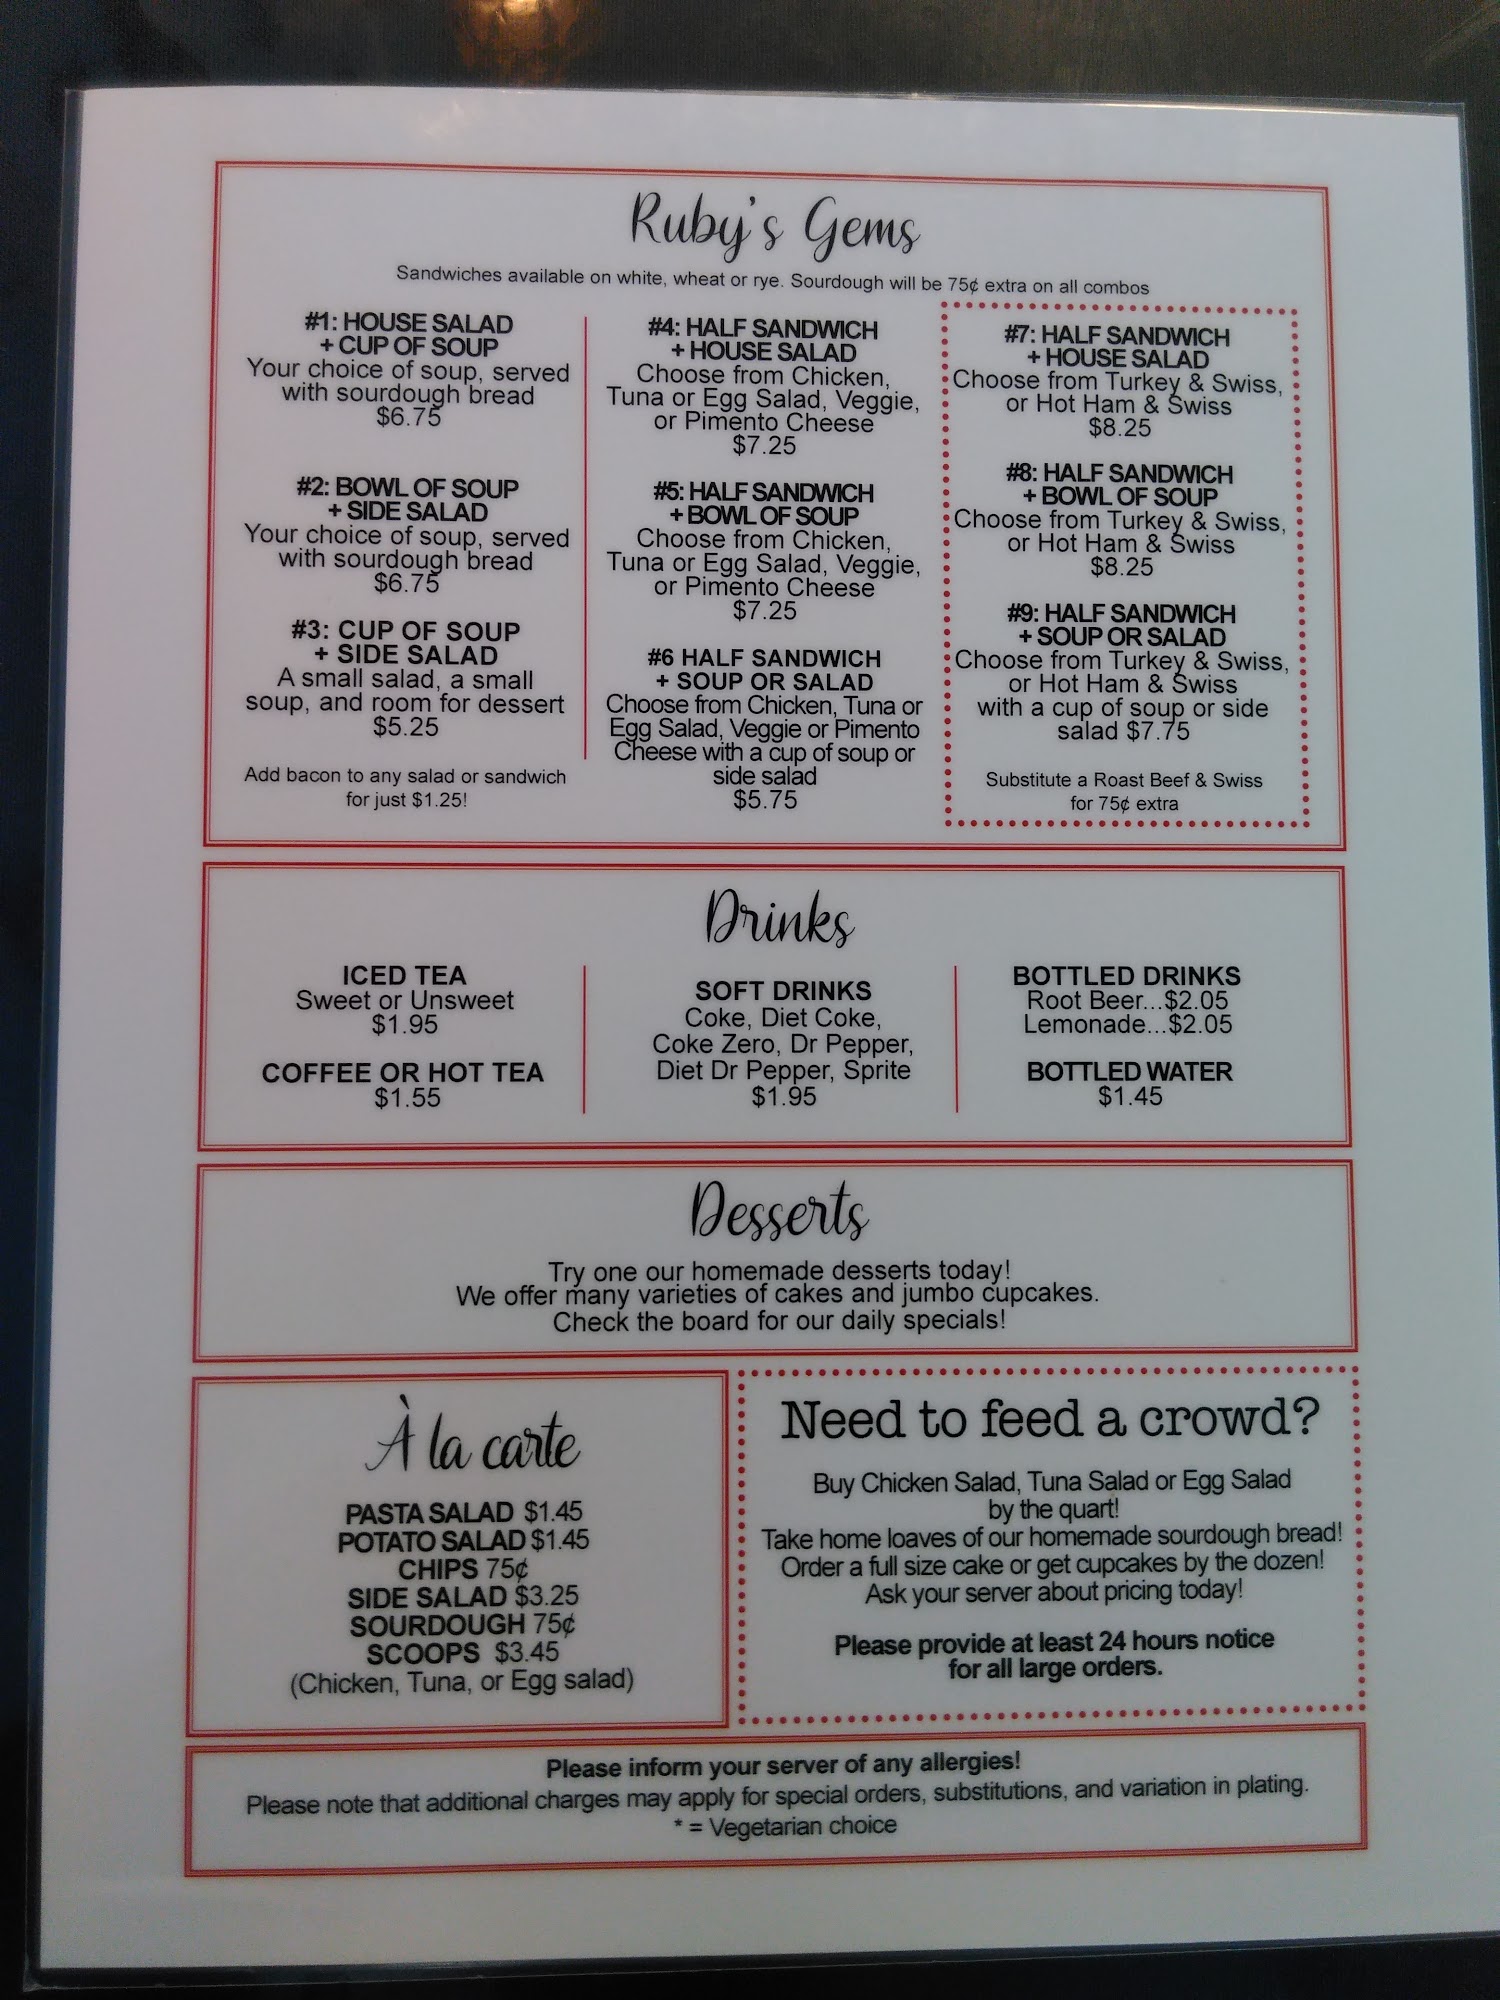 Ruby's Gems
Sandwiches available on white, wheat or rye. Sourdough will be 75¢ extra on all combos
#1: HOUSE SALAD
+ CUP OF SOUP
Your choice of soup, served
with sourdough bread
$6.75
#2: BOWL OF SOUP
+ SIDE SALAD
Your choice of soup, served
with sourdough bread
$6.75
#3: CUP OF SOUP
+ SIDE SALAD
A small salad, a small
soup, and room for dessert
$5.25
Add bacon to any salad or sandwich
for just $1.25!
#4: HALF SANDWICH
+ HOUSE SALAD
Choose from Chicken,
Tuna or Egg Salad, Veggie,
or Pimento Cheese
$7.25
#5: HALF SANDWICH
+ BOWL OF SOUP
Choose from Chicken,
Tuna or Egg Salad, Veggie,
or Pimento Cheese
$7.25
#6 HALF SANDWICH
+ SOUP OR SALAD
Choose from Chicken, Tuna or
Egg Salad, Veggie or Pimento
Cheese with a cup of soup or
side salad
$5.75
#7: HALF SANDWICH
+ HOUSE SALAD
Choose from Turkey & Swiss,
or Hot Ham & Swiss
$8.25
#8: HALF SANDWICH
+ BOWL OF SOUP
Choose from Turkey & Swiss,
or Hot Ham & Swiss
$8.25
#9: HALF SANDWICH
+ SOUP OR SALAD
Choose from Turkey & Swiss,
or Hot Ham & Swiss
with a cup of soup or side
salad $7.75
Substitute a Roast Beef & Swiss
for 75¢ extra
Drinks
ICED TEA
Sweet or Unsweet
$1.95
COFFEE OR HOT TEA
$1.55
SOFT DRINKS
Coke, Diet Coke,
Coke Zero, Dr Pepper,
Diet Dr Pepper, Sprite
$1.95
BOTTLED DRINKS
Root Beer...$2.05
Lemonade...$2.05
BOTTLED WATER
$1.45
Desserts
Try one our homemade desserts today!
We offer many varieties of cakes and jumbo cupcakes.
Check the board for our daily specials!
À la carte
PASTA SALAD $1.45
POTATO SALAD $1.45
CHIPS 75¢
SIDE SALAD $3.25
SOURDOUGH 75¢
SCOOPS $3.45
(Chicken, Tuna, or Egg salad)
Need to feed a crowd?
Buy Chicken Salad, Tuna Salad or Egg Salad
by the quart!
Take home loaves of our homemade sourdough bread!
Order a full size cake or get cupcakes by the dozen!
Ask your server about pricing today!
Please provide at least 24 hours notice
for all large orders.
Please inform your server of any allergies!
Please note that additional charges may apply for special orders, substitutions, and variation in plating.
* = Vegetarian choice